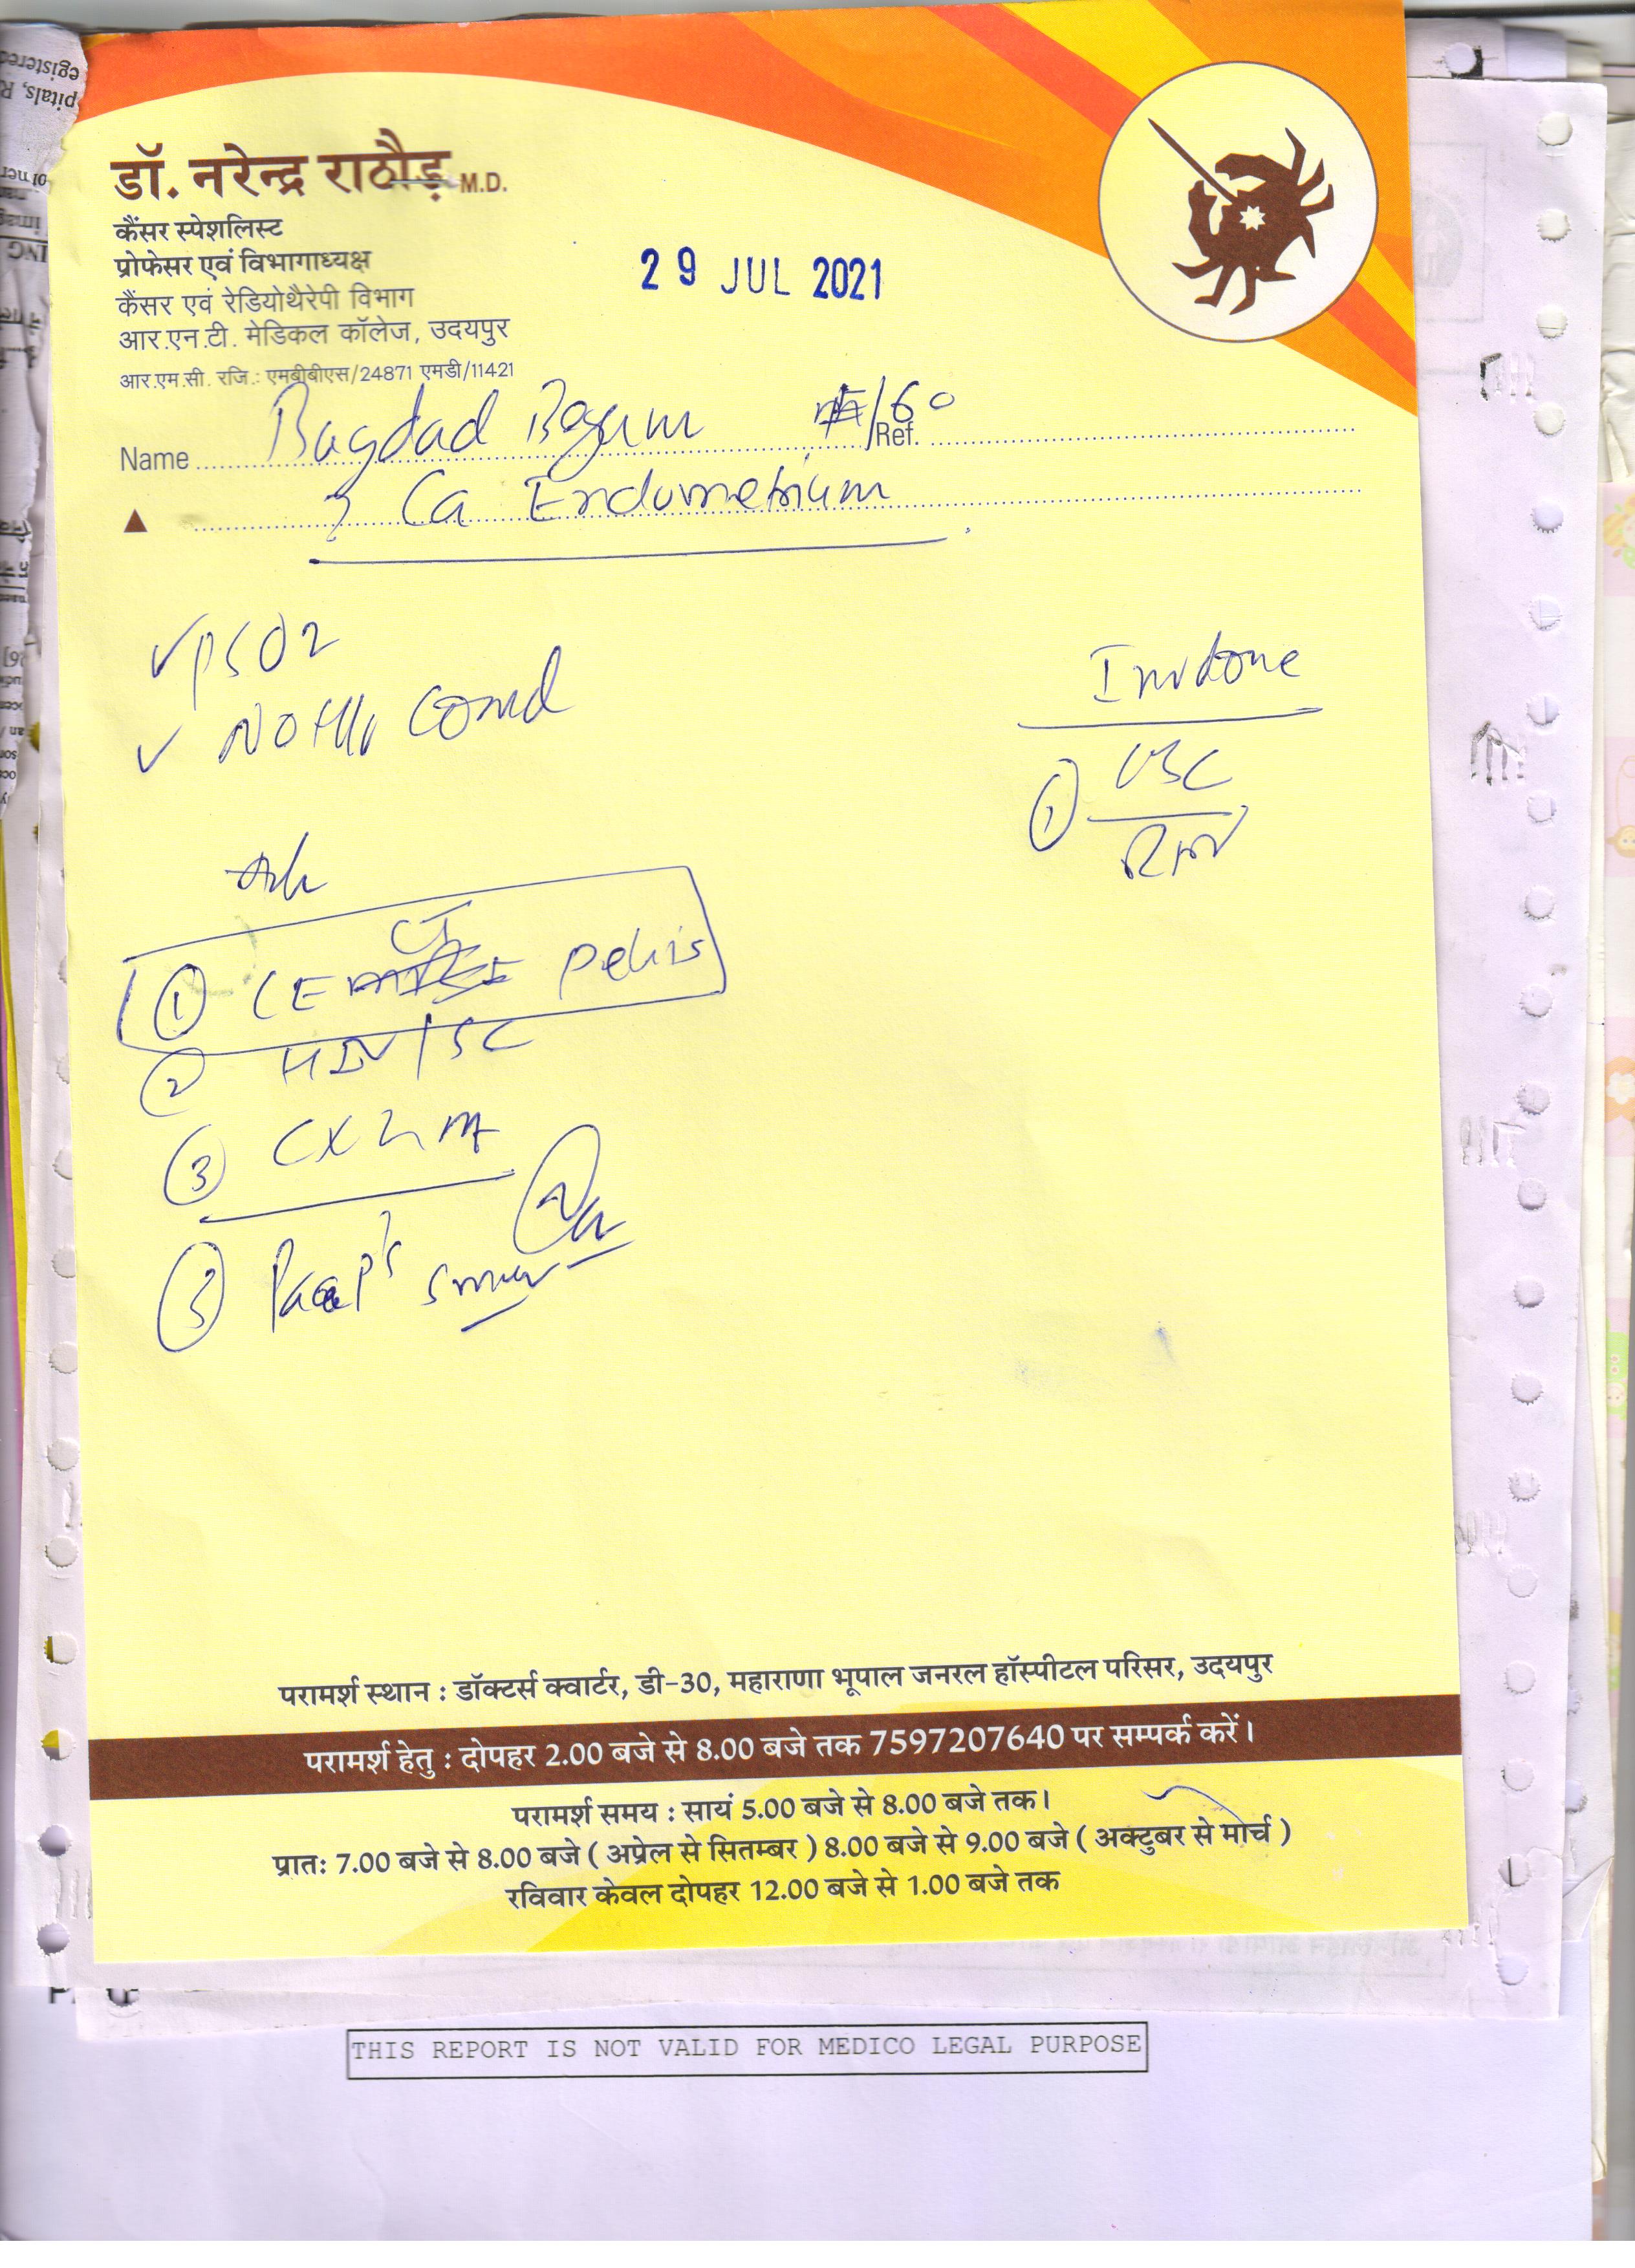 डॉ. नरेन्द्र राठौड़ M.D.
कैंसर स्पेशलिस्ट
प्रोफेसर एवं विभागाध्यक्ष
कैंसर एवं रेडियोथैरेपी विभाग
आर.एन.टी. मेडिकल कॉलेज, उदयपुर
आर.एम.सी. रजि.: एमबीबीएस/24871 एमडी/11421
29 JUL 2021
Name Bagdad Begum F/60 Ref.
? Ca Endometrium
Inv done
① CBC
Adv
① CE CT Pelvis
②
③ CXR
③ Paap's smear
परामर्श स्थान : डॉक्टर्स क्वार्टर, डी-30, महाराणा भूपाल जनरल हॉस्पीटल परिसर, उदयपुर
परामर्श हेतु : दोपहर 2.00 बजे से 8.00 बजे तक 7597207640 पर सम्पर्क करें।
परामर्श समय : सायं 5.00 बजे से 8.00 बजे तक।
प्रातः 7.00 बजे से 8.00 बजे ( अप्रेल से सितम्बर ) 8.00 बजे से 9.00 बजे ( अक्टुबर से मोर्च )
रविवार केवल दोपहर 12.00 बजे से 1.00 बजे तक
THIS REPORT IS NOT VALID FOR MEDICO LEGAL PURPOSE